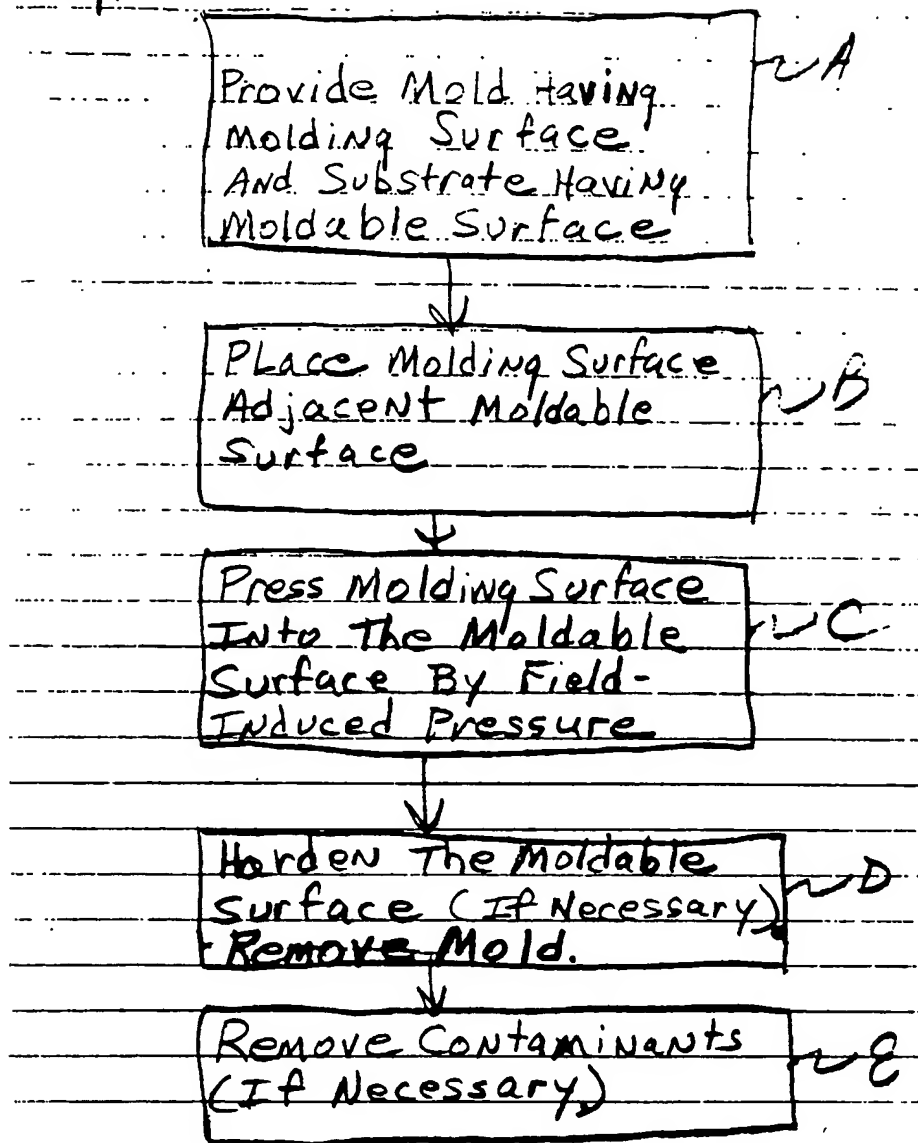 A
Provide Mold Having
Molding Surface
And Substrate Having
Moldable Surface
Place Molding Surface
B
Adjacent Moldable
Surface
Press Molding Surface
Into The Moldable
C
Surface By Field-
Induced Pressure
Harden The Moldable
D
Surface (If Necessary).
Remove Mold.
Remove Contaminants
E
(If Necessary)